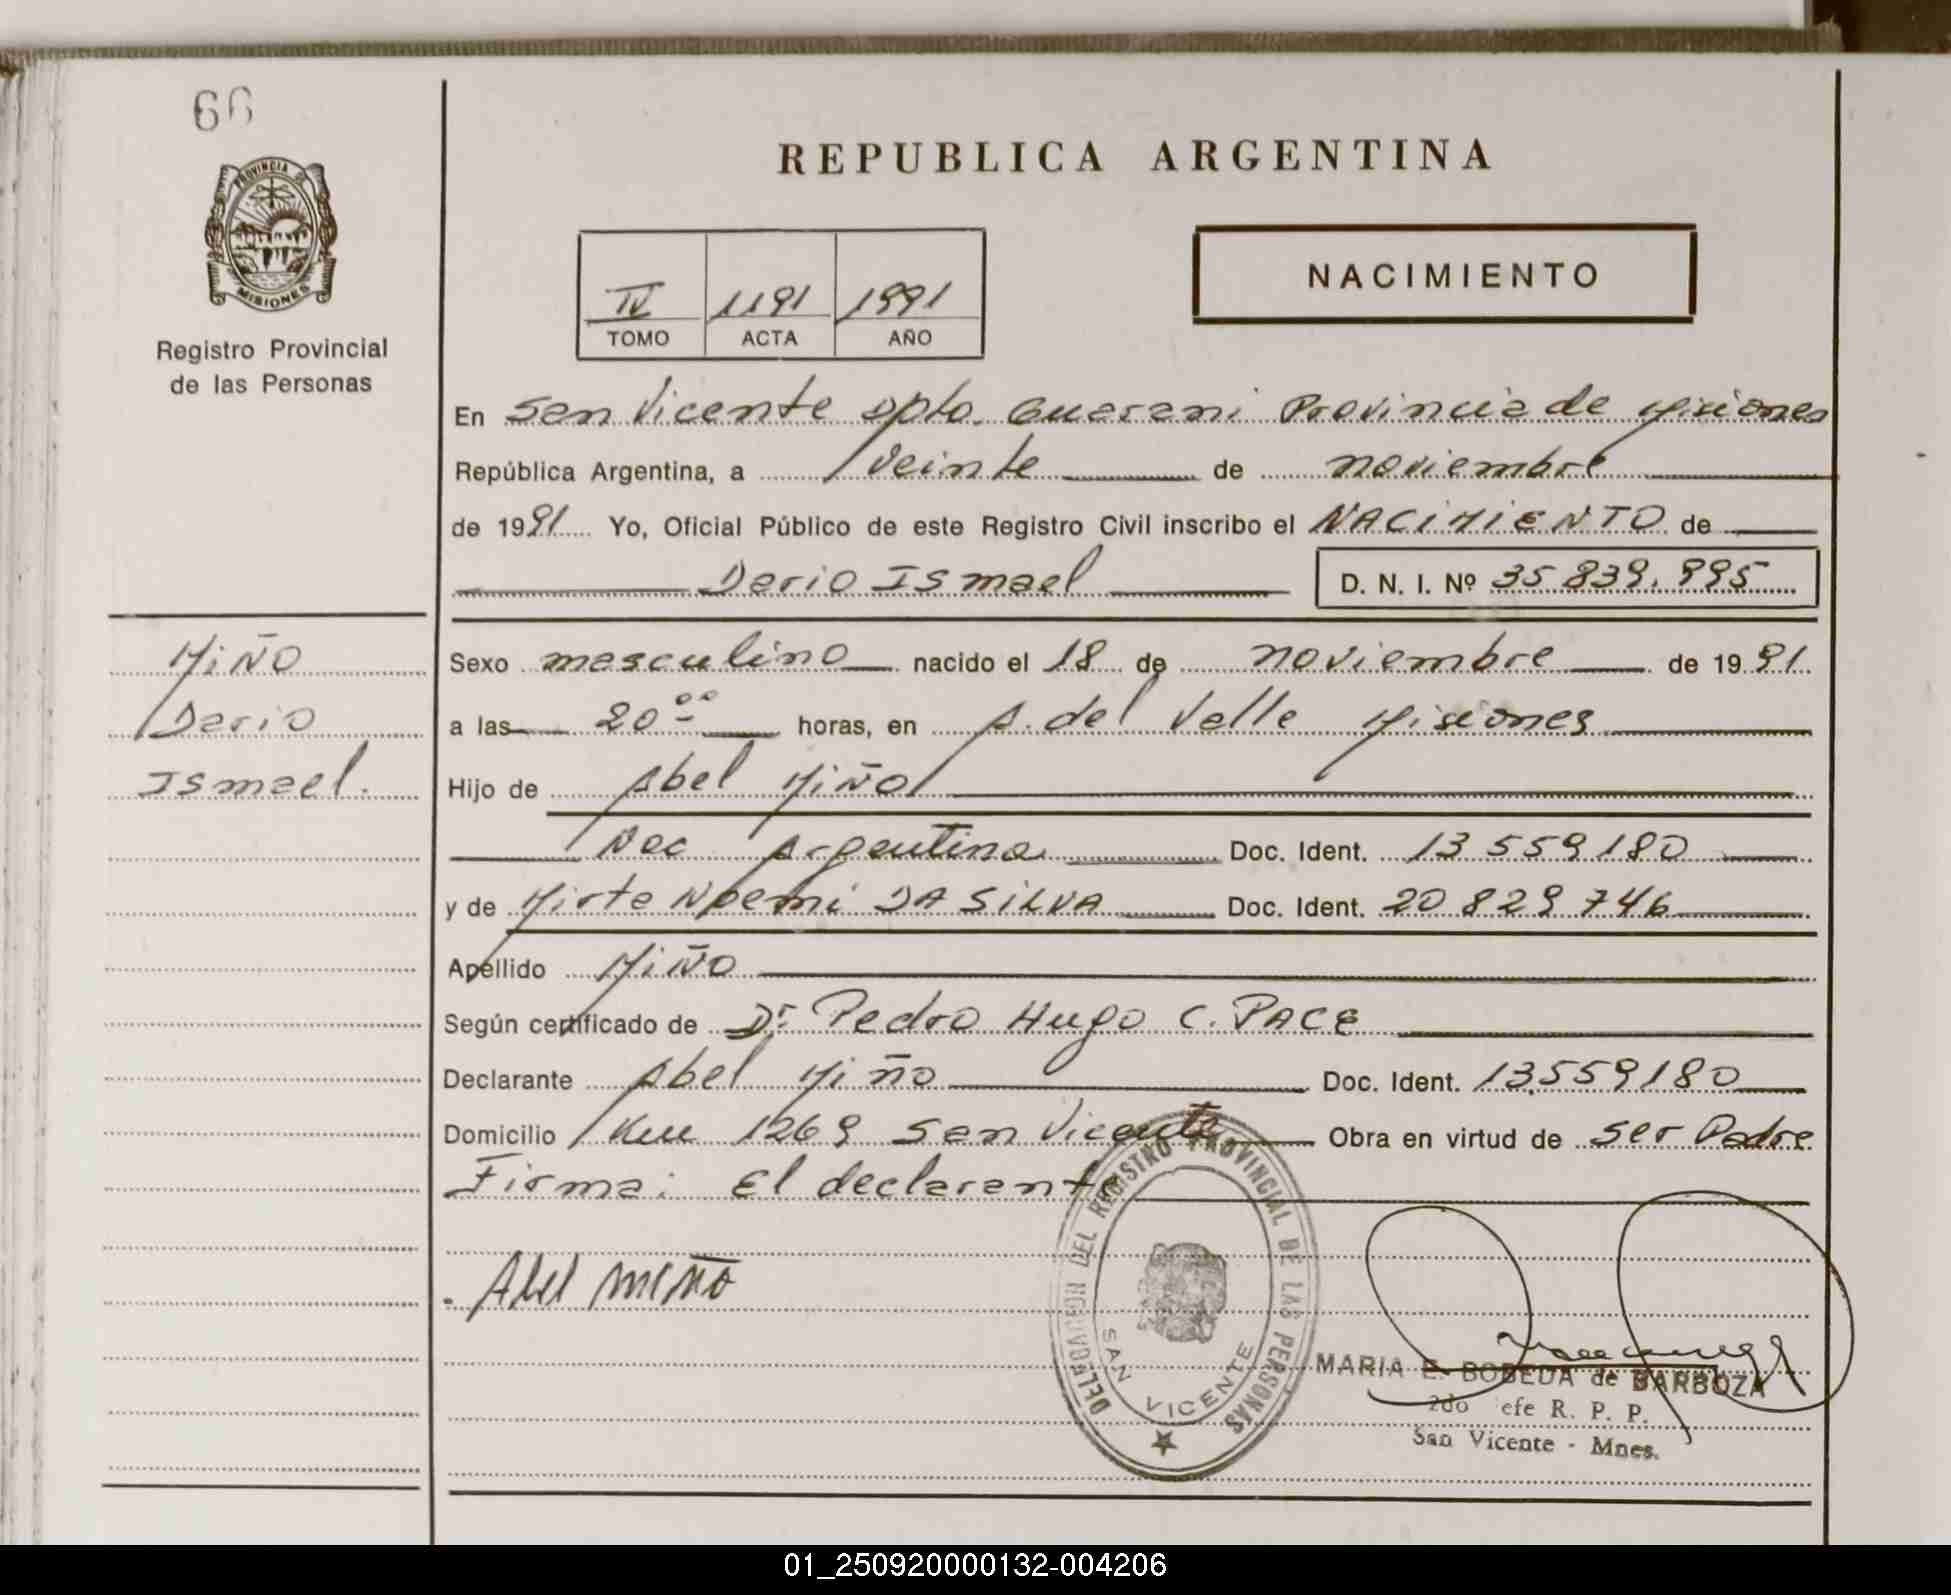 66
PROVINCIA DE
MISIONES
Registro Provincial
de las Personas
REPUBLICA ARGENTINA
NACIMIENTO
IV 1191 1991
TOMO ACTA AÑO
En San Vicente Dpto. Guarani Provincia de Misiones
República Argentina, a veinte de noviembre
de 1991 Yo, Oficial Público de este Registro Civil inscribo el NACIMIENTO de
Dario Ismael D. N. I. Nº 35.839.995
MIÑO
Dario
Ismael.
Sexo masculino nacido el 18 de noviembre de 1991
a las 20 ºº horas, en A. del Valle Misiones
Hijo de Abel Miño
Nac Argentina Doc. Ident. 13 559 180
y de Mirta Noemi DA SILVA Doc. Ident. 20 829 746
Apellido MIÑO
Según certificado de Dr. Pedro Hugo C. PACE
Declarante Abel Miño Doc. Ident. 13.559180
Domicilio Km 1269 San Vicente Obra en virtud de ser Padre
Firma: El declarante
Abel Miño
DELEGACION DEL REGISTRO PROVINCIAL DE LAS PERSONAS
SAN VICENTE
MARIA E. BOBEDA de BARBOZA
2do efe R. P. P.
San Vicente - Mnes.
01_250920000132-004206